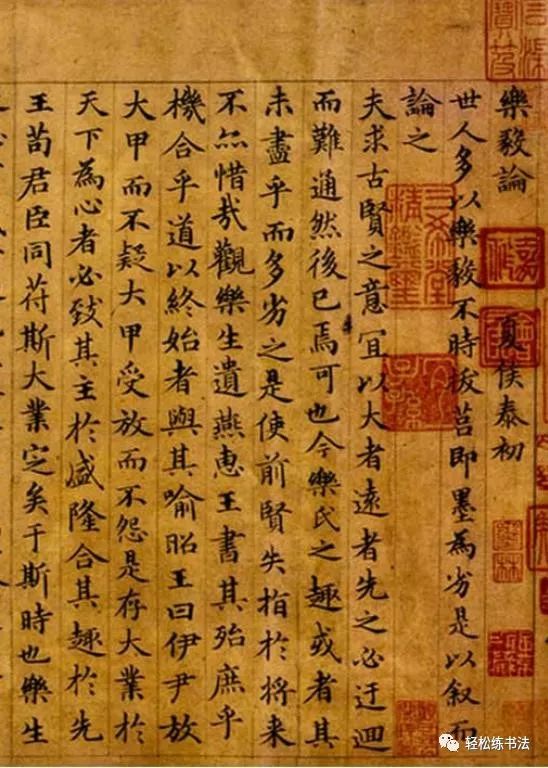 樂毅論 夏侯泰初
世人多以樂毅不時拔莒即墨為劣是以叙而
論之
夫求古賢之意宜以大者遠者先之必迂迴
而難通然後已焉可也今樂氏之趣或者其
未盡乎而多劣之是使前賢失指於将来
不亦惜哉觀樂生遺燕惠王書其殆庶乎
機合乎道以終始者與其喻昭王曰伊尹放
大甲而不疑大甲受放而不怨是存大業於
天下為心者必致其主於盛隆合其趣於先
王苟君臣同苻斯大業定矣于斯時也樂生
三希堂精鑑璽
宜子孫
轻松练书法